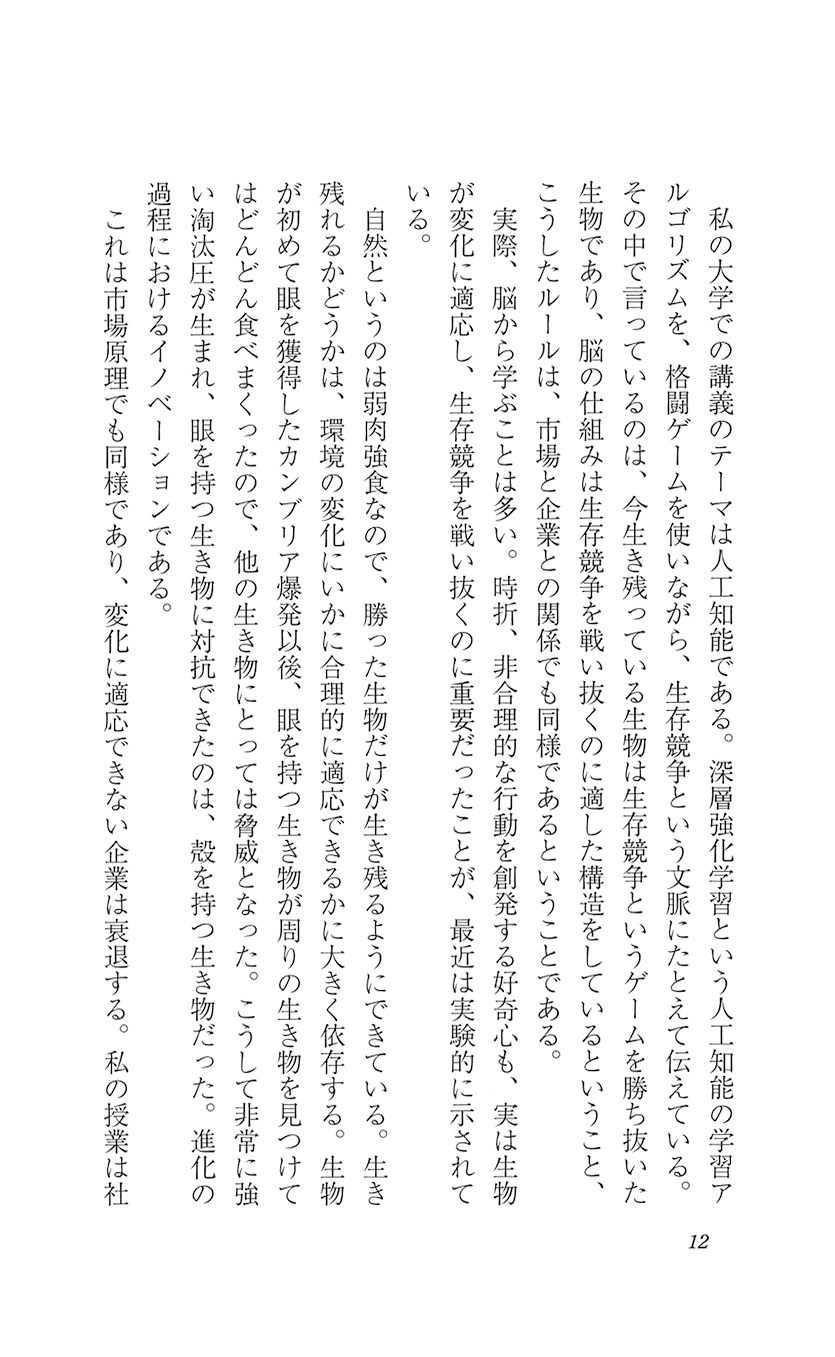 私の大学での講義のテーマは人工知能である。深層強化学習という人工知能の学習ア
ルゴリズムを、格闘ゲームを使いながら、生存競争という文脈にたとえて伝えている。
その中で言っているのは、今生き残っている生物は生存競争というゲームを勝ち抜いた
生物であり、脳の仕組みは生存競争を戦い抜くのに適した構造をしているということ、
こうしたルールは、市場と企業との関係でも同様であるということである。
　実際、脳から学ぶことは多い。時折、非合理的な行動を創発する好奇心も、実は生物
が変化に適応し、生存競争を戦い抜くのに重要だったことが、最近は実験的に示されて
いる。
　自然というのは弱肉強食なので、勝った生物だけが生き残るようにできている。生き
残れるかどうかは、環境の変化にいかに合理的に適応できるかに大きく依存する。生物
が初めて眼を獲得したカンブリア爆発以後、眼を持つ生き物が周りの生き物を見つけて
はどんどん食べまくったので、他の生き物にとっては脅威となった。こうして非常に強
い淘汰圧が生まれ、眼を持つ生き物に対抗できたのは、殻を持つ生き物だった。進化の
過程におけるイノベーションである。
　これは市場原理でも同様であり、変化に適応できない企業は衰退する。私の授業は社
12